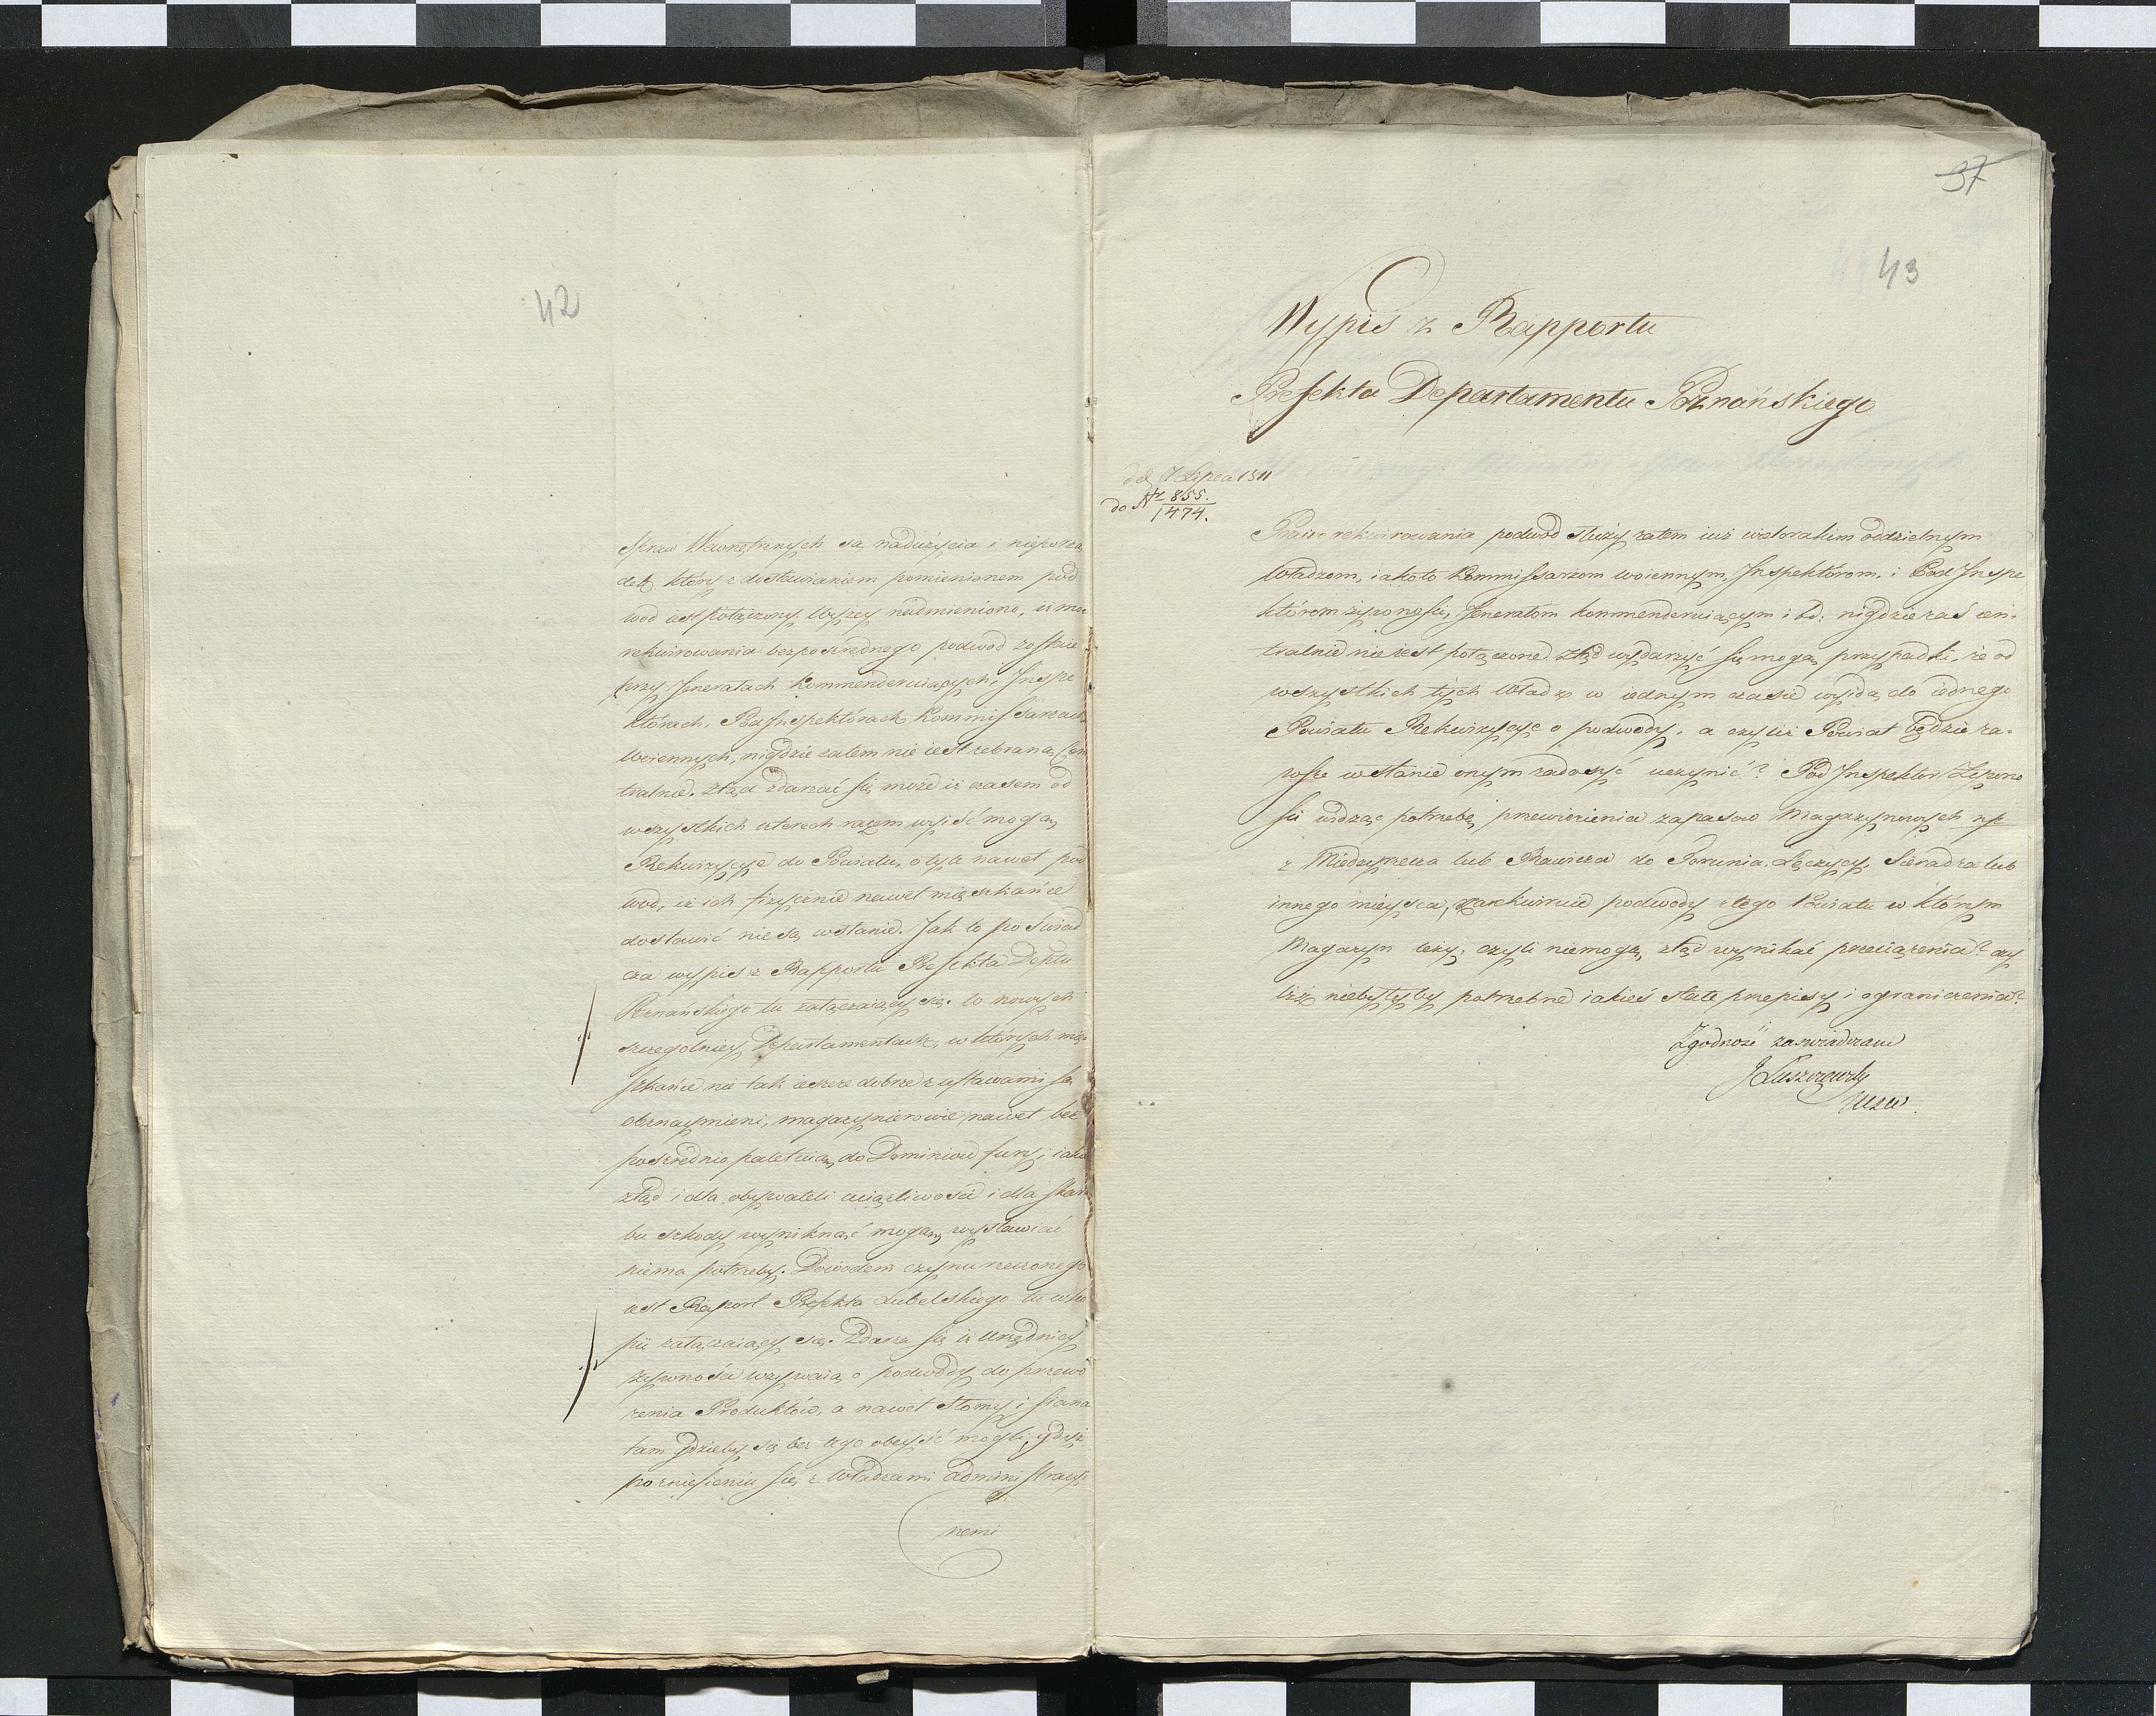 42
Spraw Wewnętrznych są nadużycia i nieporzą
dek, który z dostawianiem pomienionem pod
wod iest połączony. Wyżey nadmieniono, iż moc
rekwirowania bezpośrednego podwod zostaie
przy Jenerałach kommenderuiących, Inspe
którach, PodInspektórach Kommissarzach
Woiennych, nigdzie zatem nie iest zebrana Cen
tralnie. Ztąd zdarzać się może iż czasem od
wszystkich czterech razem wyiść mogą
Rekwizycye do Powiatu, o tyle nawet pod
wod, iż ich fizycznie nawet mięszkańce
dostawić nie są wstanie. Jak to poświad
cza wypis z Rapportu Prefekta Deptu
Poznańskiego tu załączaiący się. W nowych
szczegolniey Departamentach, w których mię
szkańce nie tak ieszcze dobrze z ustawami są
obeznaymieni, magazynierowie nawet bez
pośrednio paletuią do Dominiow fury, i iakie
ztąd i dla obywateli uciążliwości i dla skar
bu szkody wyniknąć mogą, wystawiać
niema potrzeby. Dowodem czynu rzeczonego
iest Raport Prefekta Lubelskiego tu w ko
pii załączaiący się. Zdarza się iż Urzędnicy
żywności wzywaią o podwody do przewo
żenia Produktów, a nawet słomy i siana
tam gdzieby się bez tego obeyść mogli, gdyż
poznięsieniu się z Władzami administracy
nemi
37
43
Wypis z Rapportu
Prefekta Departamentu Poznańskiego
dd 7 Lipca 1811
do Nr 855.
1474.
Prawo rekwirowania podwod służy zatem iuż wielorakim oddzielnym
Władzom, iakoto Kommissarzom woiennym, Inspektórom, i Pod Inspe
któróm żywności, Jenerałom kommenderuiącym i td: nigdzie zaś cen-
tralnie nie iest połączone. Ztąd wydarzyć się mogą przypadki, że od
wszystkich tych Władz w iednym czasie wyidą do iednego
Powiatu Rekwizycye o podwody, a czyliż Powiat będzie za-
wsze wstanie onym zadosyć uczynić? Pod Inspektor Żywno
ści widząc potrzebę przewiezienia zapasow Magazynowych np
z Międzyrzecza lub Rawicza do Torunia, Łęczycy, Sieradza lub
innego mieysca, zarekwiruie podwody z tego Powiatu w którym
Magazyn leży; czyli niemogą ztąd wynikać przeciążenia? czy
liż niebyłyby potrzebne iakieś stałe przepisy i ograniczenia?
Zgodność zaświadczam
J Łuszczewsky